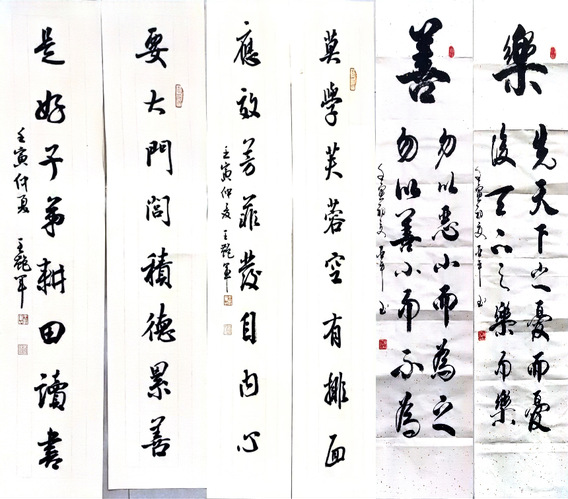 樂
先天下之憂而憂
後天下之樂而樂
善
勿以惡小而為之
勿以善小而不為
莫學芙蓉空有排面
應效芳菲發自内心
壬寅仲夏 王艷軍
要大門閭積德累善
是好子弟耕田讀書
壬寅仲夏 王艷軍